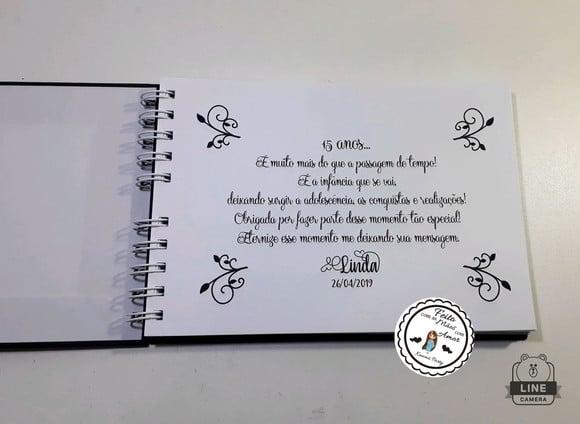 15 anos...
É muito mais do que a passagem de tempo!
É a infância que se vai,
deixando surgir a adolescência, as conquistas e realizações!
Obrigada por fazer parte desse momento tão especial!
Eternize esse momento me deixando sua mensagem.
Linda
26/04/2019
Feito
com as Mãos
com Amor
Party
LINE
CAMERA